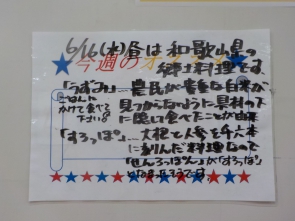 6/16(木)昼は和歌山県の
今週のオススメ
郷土料理です。
「うずみ」…農民が貴重な白米が
見つからないように具材の下
に隠して食べたことが由来
ごはんに
かけて食べて
下さい。
「すろっぽ」…大根と人参を千六本
に刻んだ料理なので
「せんろっぽん」が「すろっぽ」
となったそうです。